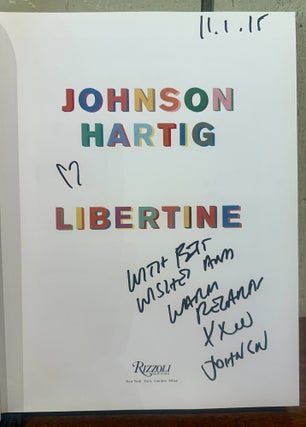 11.1.15
JOHNSON
HARTIG
LIBERTINE
WITH BEST
WISHES AND
WARM
REGARDS
XXOO
JOHNSON
RIZZOLI
New York Paris London Milan